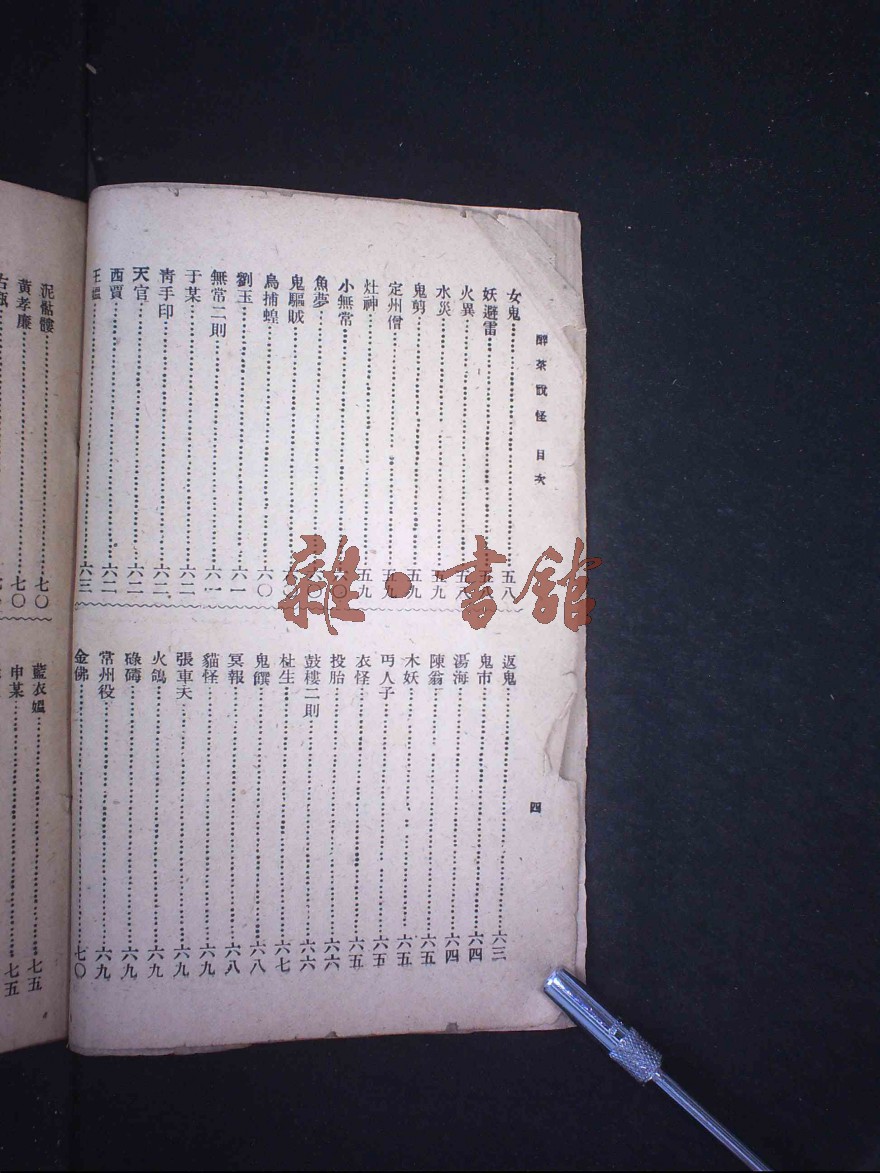 醉茶說怪 目次
四
女鬼……五八
妖避雷……五八
火異……五八
水災……五九
鬼剪……五九
定州僧……五九
灶神……五九
小無常……六〇
魚夢……六〇
鬼驅賊……六〇
鳥捕蝗……六〇
劉玉……六一
無常二則……六一
于某……六二
青手印……六二
天官……六二
西賈……六二
王媼……六三
返鬼……六三
鬼市……六四
湯海……六四
陳翁……六五
木妖……六五
丐人子……六五
衣怪……六五
投胎……六六
鼓樓二則……六六
杜生……六七
鬼饌……六八
冥報……六八
貓怪……六九
張車天……六九
火鴿……六九
碌碡……六九
常州役……六九
金佛……七〇
泥骷髏……七〇
黃孝廉……七〇
藍衣媼……七五
申某……七五
雜·書館